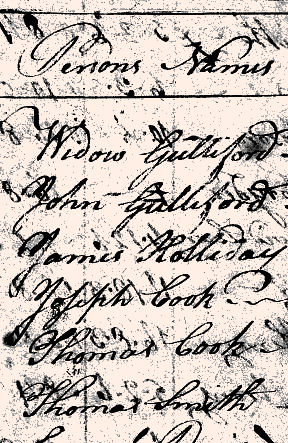 Persons Names
Widow Gulliford
John Gulliford
James Holliday
Joseph Cook
Thomas Cook
Thomas Smith